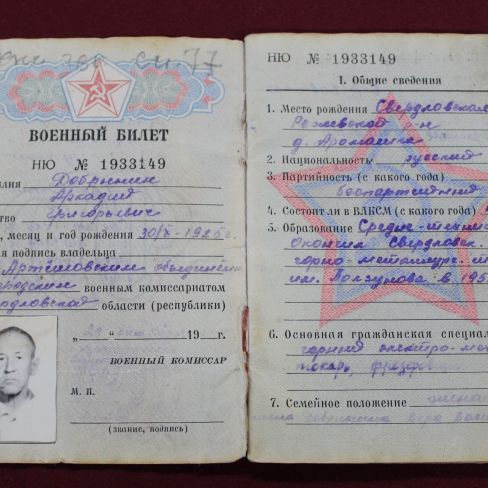 см. 77
ВОЕННЫЙ БИЛЕТ
НЮ № 1933149
илия Добрынин
Аркадий
ство Григорьевич
, месяц и год рождения 30/X-1925 г.
я подпись владельца
Артемовским объединен
городским военным комиссариатом
рдловской области (республики)
19 г.
ВОЕННЫЙ КОМИССАР
М. П.
(звание, подпись)
НЮ № 1933149
I. Общие сведения
1. Место рождения Свердловская
Режевской р-н
д. Арамашка
2. Национальность русский
3. Партийность (с какого года)
беспартийный
4. Состоял ли в ВЛКСМ (с какого года)
5. Образование Средне-техни
Окончил Свердловск.
горно-металлург.
им. Ползунова в 195
6. Основная гражданская специал
горный электро-ме
токарь, фрезеров
7. Семейное положение женат
Вера